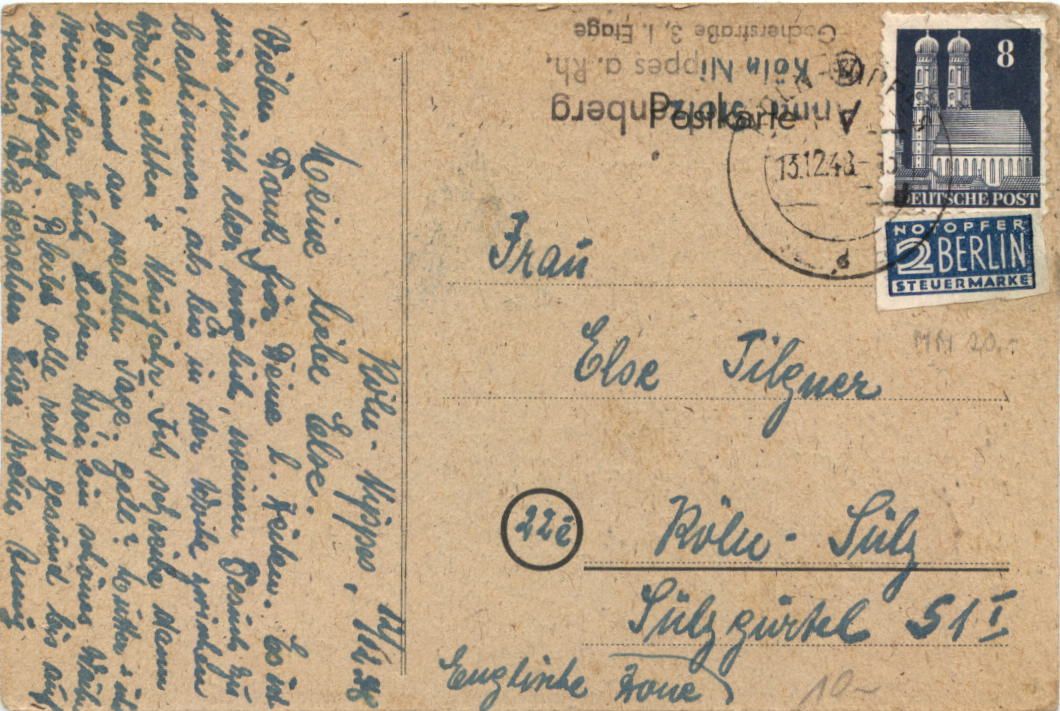 Köln-Nippes, 12/12.48
Meine liebe Else.
Vielen Dank für Deine l. Zeilen. Es ist
mir nicht eher möglich, meinen Besuch zu
bestimmen, als bis in der Woche zwischen
Weihnachten + Neujahr. Ich schreibe dann
bestimmt an welchem Tage, gelt? Mutter + ich
wünschen Euch Lieben Drei ein schönes Weih-
nachtsfest. Bleibt alle recht gesund bis auf
frohes Wiedersehen Eure treue Anny
Anni Stolzenberg
Köln Nippes a. Rh.
Gocherstraße 3, I. Etage
Postkarte
KÖLN-NIPPES
13.12.48
8
DEUTSCHE POST
NOTOPFER
2 BERLIN
STEUERMARKE
MM 20.-
Frau
Else Tilgner
22c
Köln-Sülz
Sülzgürtel 51 I
Englische Zone
10-